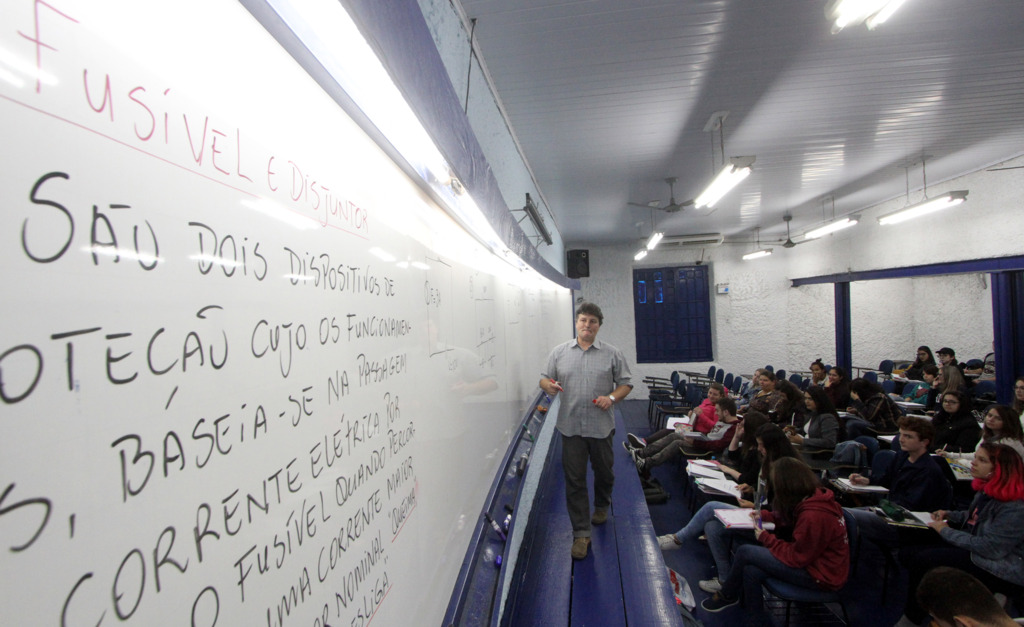 Fusível e Disjuntor
São dois dispositivos de
oteção cujo os funcionamen-
s, baseia-se na passagem
corrente elétrica por
o fusível quando percor-
uma corrente maior
or nominal "queima"
esliga"